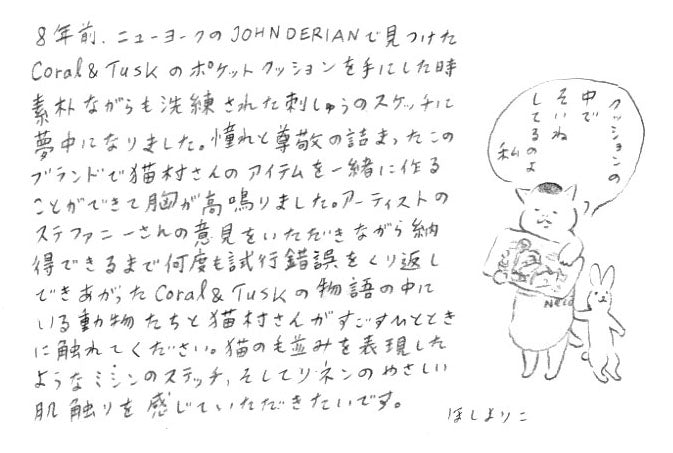 8年前、ニューヨークのJOHN DERIANで見つけた
Coral&Tuskのポケットクッションを手にした時
素朴ながらも洗練された刺しゅうのスケッチに
夢中になりました。憧れと尊敬の詰まったこの
ブランドで猫村さんのアイテムを一緒に作る
ことができて胸が高鳴りました。アーティストの
ステファニーさんの意見をいただきながら納
得できるまで何度も試行錯誤をくり返し
できあがったCoral&Tuskの物語の中に
いる動物たちと猫村さんがすごすひととき
に触れてください。猫の毛並みを表現した
ようなミシンのステッチ、そしてリネンのやさしい
肌触りを感じていただきたいです。
ほしよりこ
クッションの
中で
そいね
してるのよ
私